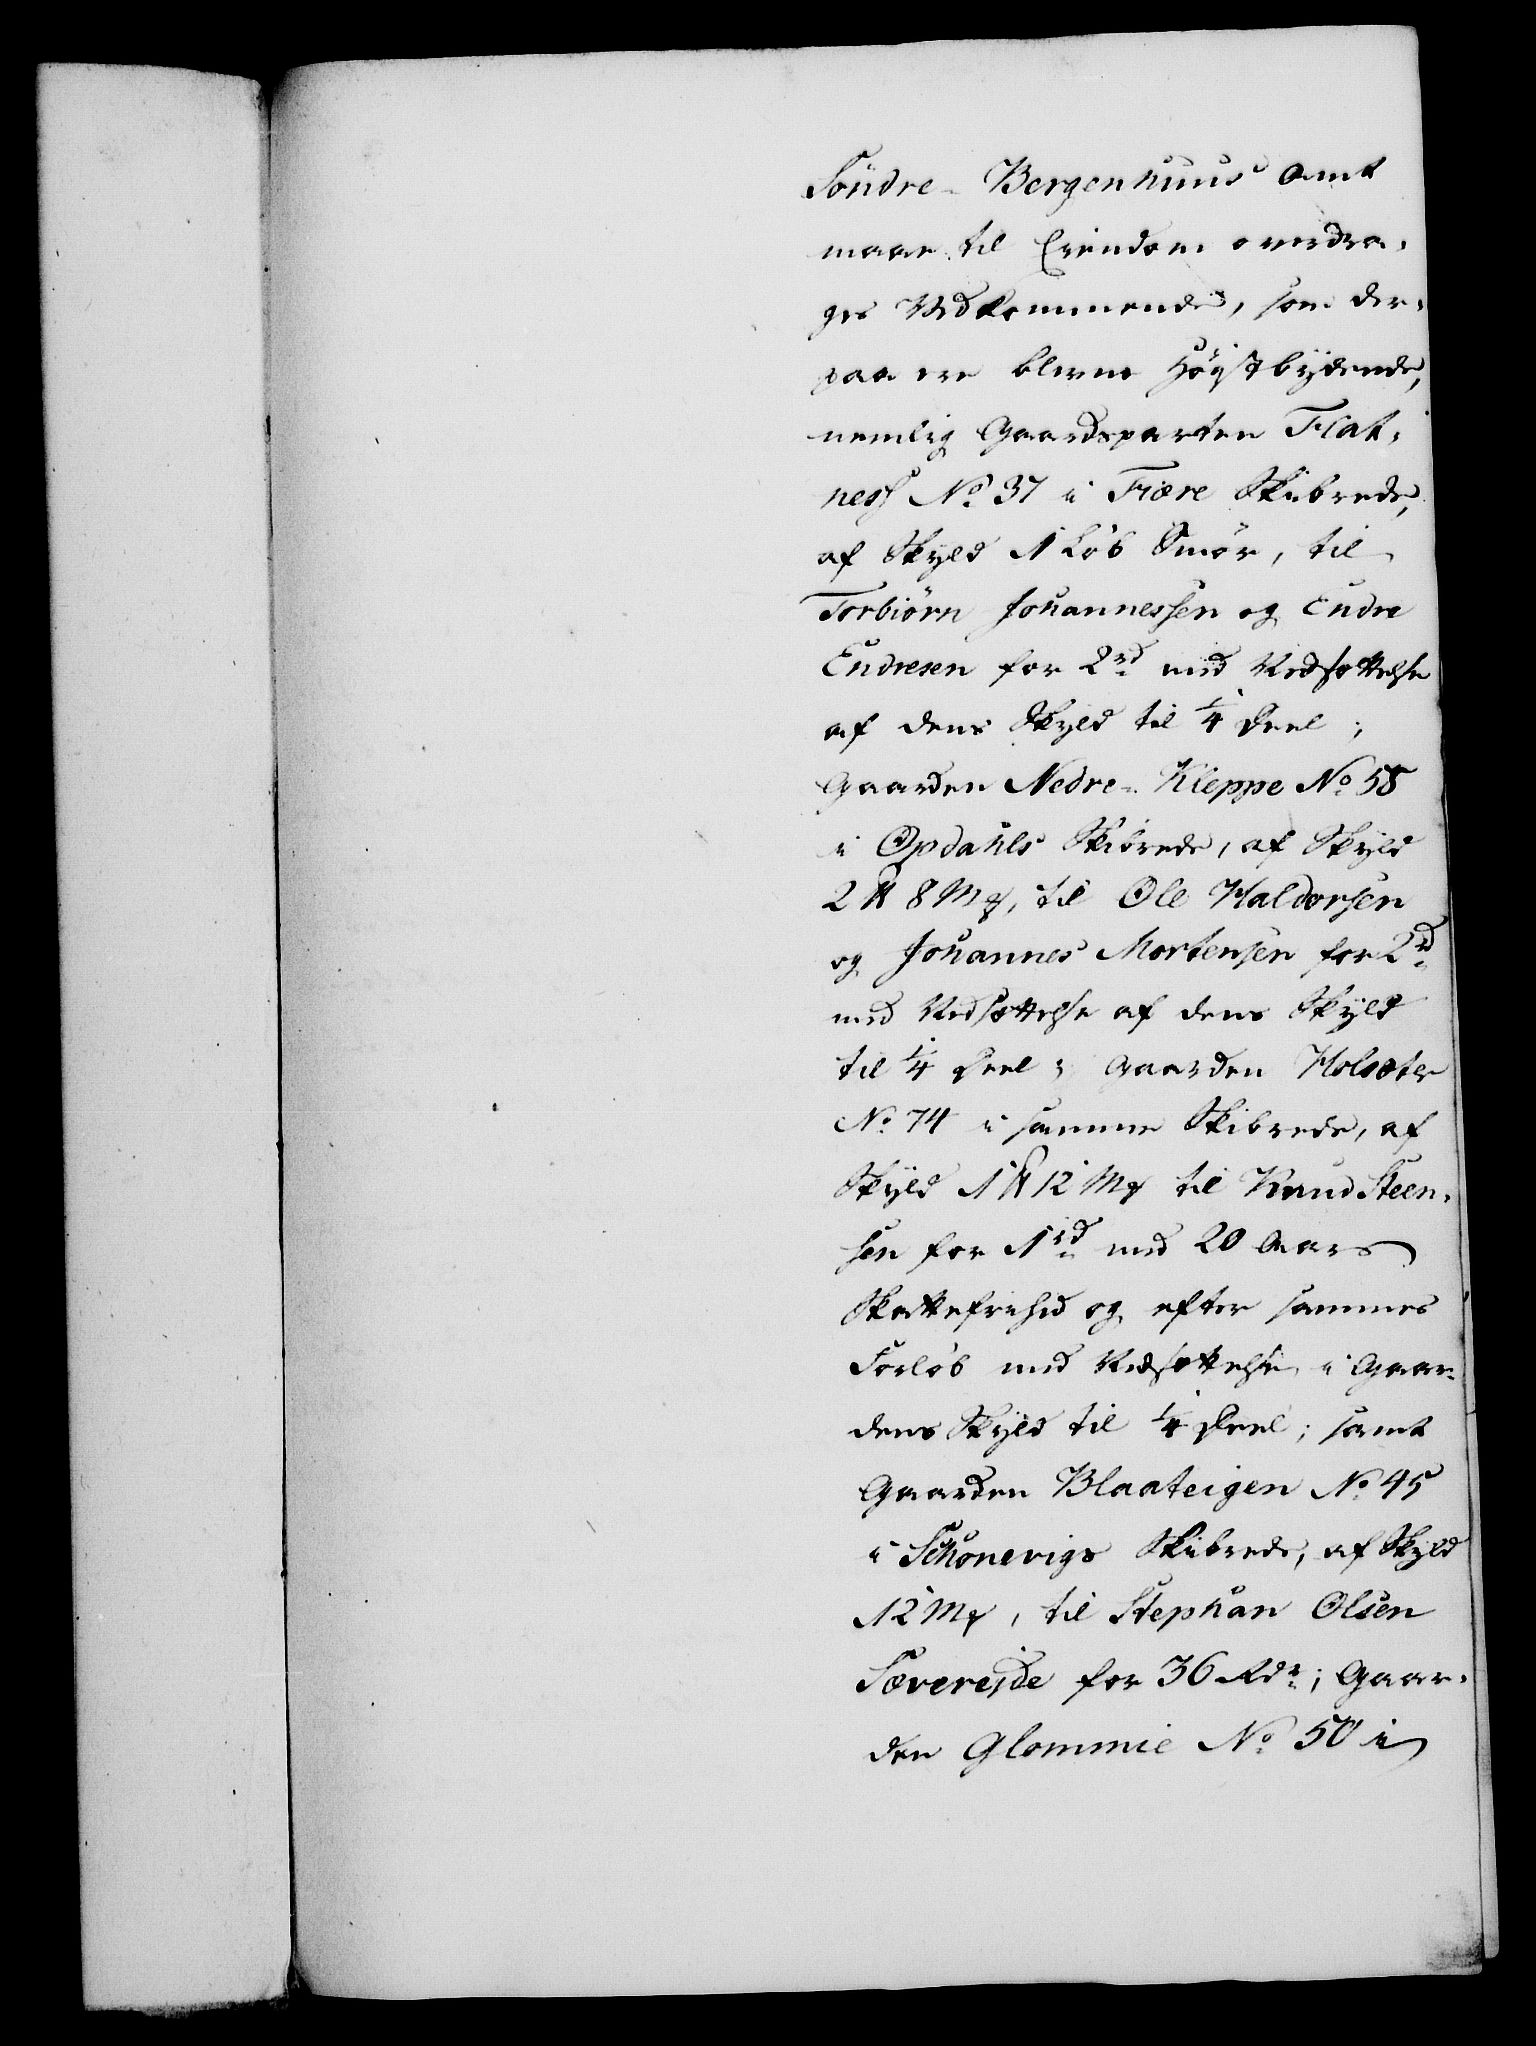 Söndre-Bergenhuus Amt
maae til Eiendom overdra-
ges Vedkommende, som der-
paa ere blevne Höystbydende,
nemlig Gaardsparten Flat-
ness No 37 i Fiære Skibrede,
af Skyld 1 Löb Smör, til
Torbiörn Johannessen og Endre
Endresen for 2 rd med Nedsættelse
af dens Skyld til 1/4 Deel;
Gaarden Nedre-Kleppe No 58
i Opdahls Skibrede, af Skyld
2 ℔ 8 Mk, til Ole Haldorsen
og Johannes Mortensen for 2 rd
med Nedsættelse af dens Skyld
til 1/4 Deel; Gaarden Holsæter
No 74 i samme Skibrede, af
Skyld 1 ℔ 12 Mk til Knud Steen-
sen for 1 rd med 20 Aars
Skattefrihed og efter sammes
Forlöb med Nedsættelse i Gaar-
dens Skyld til 1/4 Deel; samt
Gaarden Blaateigen No 45
i Schonevigs Skibrede, af Skyld
12 Mk, til Stephan Olsen
Sævereide for 36 Rdr; Gaar-
den Glommie No 50 i